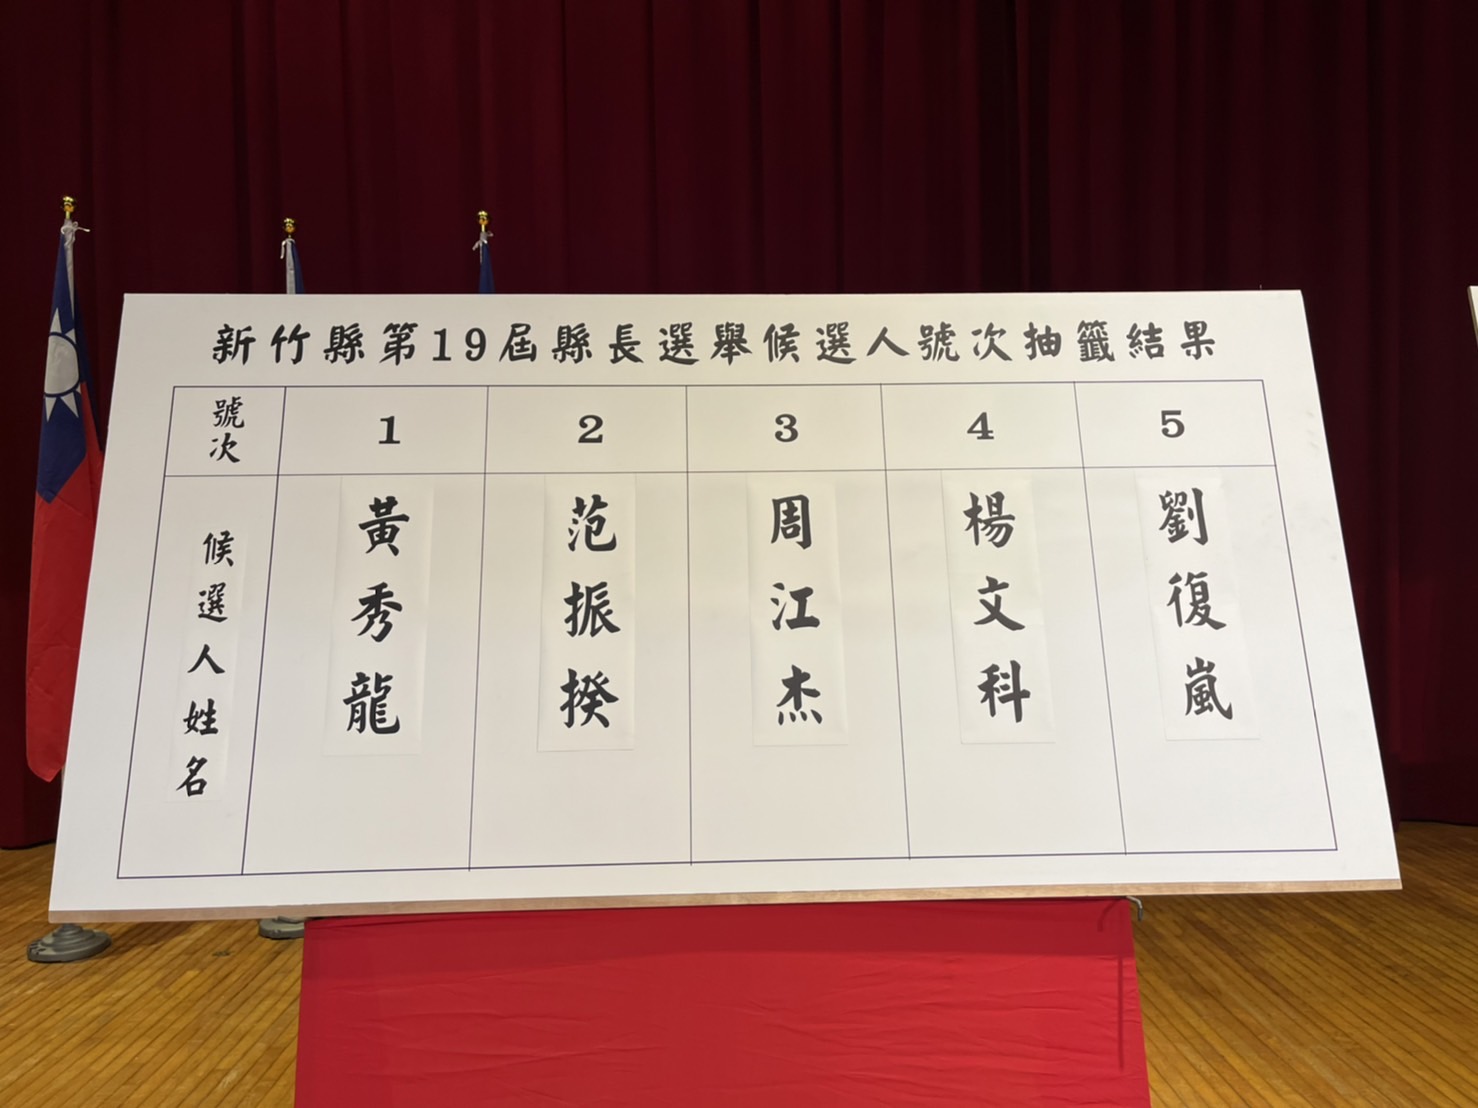 新竹縣第19屆縣長選舉候選人號次抽籤結果
號次
1
2
3
4
5
候選人姓名
黃秀龍
范振揆
周江杰
楊文科
劉復嵐